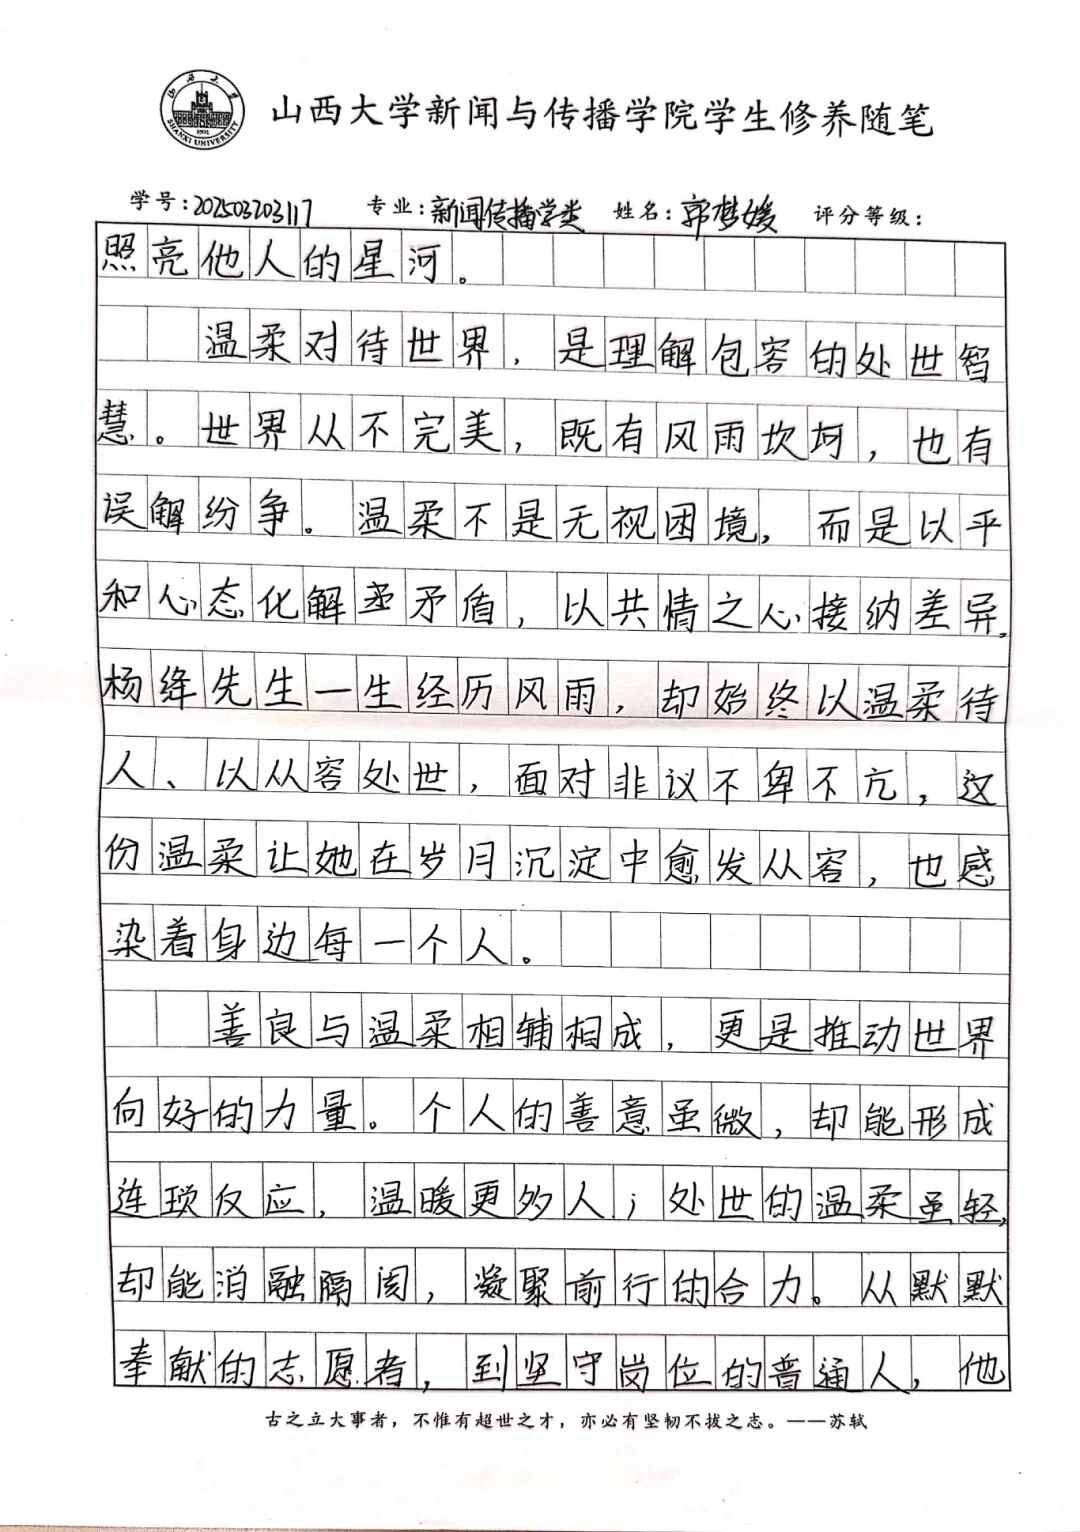 山西大学
SHANXI UNIVERSITY
1902
山西大学新闻与传播学院学生修养随笔
学号:202503203117 专业:新闻传播学类 姓名:郭梦媛 评分等级:
照亮他人的星河。
温柔对待世界，是理解包容的处世智
慧。世界从不完美，既有风雨坎坷，也有
误解纷争。温柔不是无视困境，而是以平
和心态化解矛盾，以共情之心接纳差异。
杨绛先生一生经历风雨，却始终以温柔待
人、以从容处世，面对非议不卑不亢，这
份温柔让她在岁月沉淀中愈发从容，也感
染着身边每一个人。
善良与温柔相辅相成，更是推动世界
向好的力量。个人的善意虽微，却能形成
连锁反应，温暖更多人；处世的温柔虽轻，
却能消融隔阂，凝聚前行的合力。从默默
奉献的志愿者，到坚守岗位的普通人，他
古之立大事者，不惟有超世之才，亦必有坚韧不拔之志。——苏轼